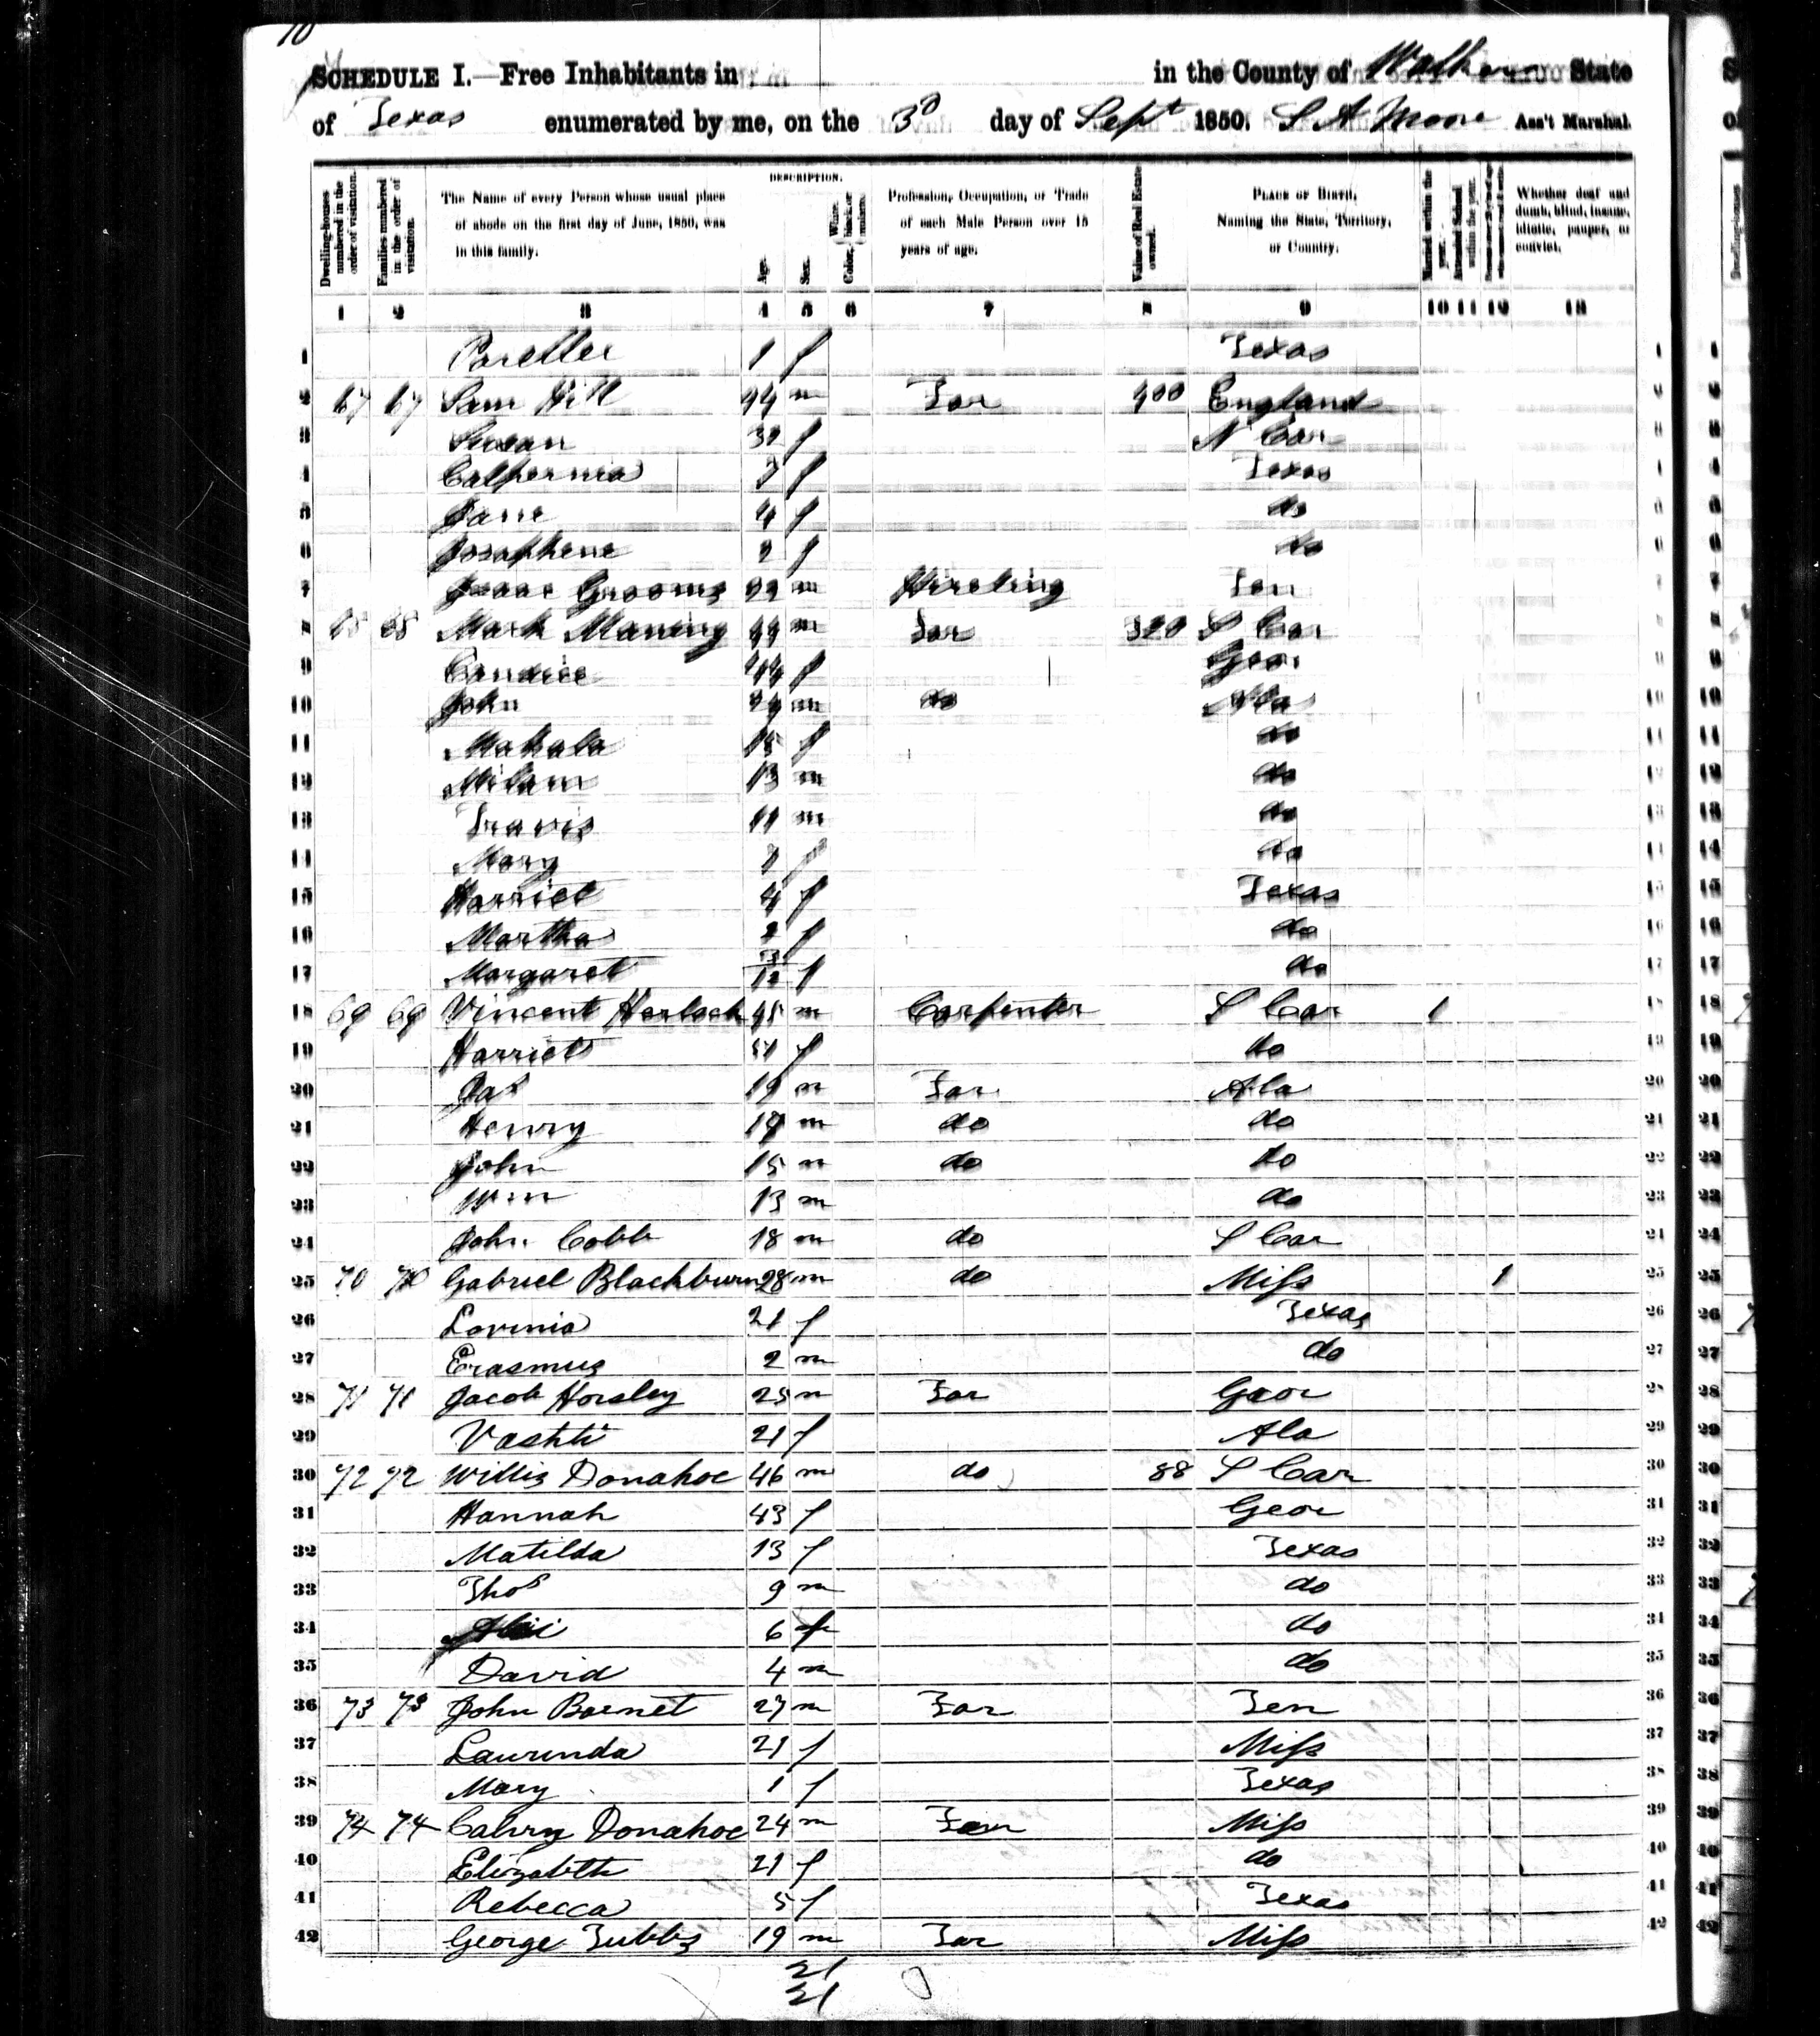 10
SCHEDULE I.—Free Inhabitants in in the County of Walker State
of Texas enumerated by me, on the 3d day of Sept 1850. S A Moore Ass't Marshal.
Dwelling-houses numbered in the order of visitation.
Families numbered in the order of visitation.
The Name of every Person whose usual place of abode on the first day of June, 1850, was in this family.
DESCRIPTION.
Age.
Sex.
White, Color, black, or mulatto.
Profession, Occupation, or Trade of each Male Person over 15 years of age.
Value of Real Estate owned.
PLACE OF BIRTH, Naming the State, Territory, or Country.
Married within the year.
Attended School within the year.
Whether deaf and dumb, blind, insane, idiotic, pauper, or convict.
1 2 3 4 5 6 7 8 9 10 11 12 13
1 1 f Texas 1
2 67 67 Sam Hill 44 m Far 400 England 2
3 Susan 32 f N Car 3
4 Calpernia 7 f Texas 4
5 Jane 4 f do 5
6 Josephene 2 f do 6
7 Isaac Grooms 22 m Hireling Ten 7
8 68 68 Mark Maning 44 m Far 320 S Car 8
9 Candice 44 f Geor 9
10 John 24 m do Ala 10
11 Mahala 15 f do 11
12 Milam 13 m do 12
13 Travis 11 m do 13
14 Mary 7 f do 14
15 Harriet 4 f Texas 15
16 Martha 2 f do 16
17 Margaret 3/12 f do 17
18 69 69 Vincent Herlock 45 m Carpenter S Car 1 18
19 Harriet 51 f do 19
20 Jas 19 m Far Ala 20
21 Henry 17 m do do 21
22 John 15 m do do 22
23 Wm 13 m do 23
24 John Cobb 18 m do S Car 24
25 70 70 Gabriel Blackburn 28 m do Miss 1 25
26 Lovinia 21 f Texas 26
27 Erasmus 2 m do 27
28 71 71 Jacob Horsley 25 m Far Geor 28
29 Vashti 21 f Ala 29
30 72 72 Willis Donahoe 46 m do 88 S Car 30
31 Hannah 43 f Geor 31
32 Matilda 13 f Texas 32
33 Thos 9 m do 33
34 6 f do 34
35 David 4 m do 35
36 73 73 John Barnet 27 m Far Ten 36
37 Laurinda 21 f Miss 37
38 Mary 1 f Texas 38
39 74 74 Calvry Donahoe 24 m Far Miss 39
40 Elizabeth 21 f do 40
41 Rebecca 5 f Texas 41
42 George Tubbs 19 m Far Miss 42
21
21